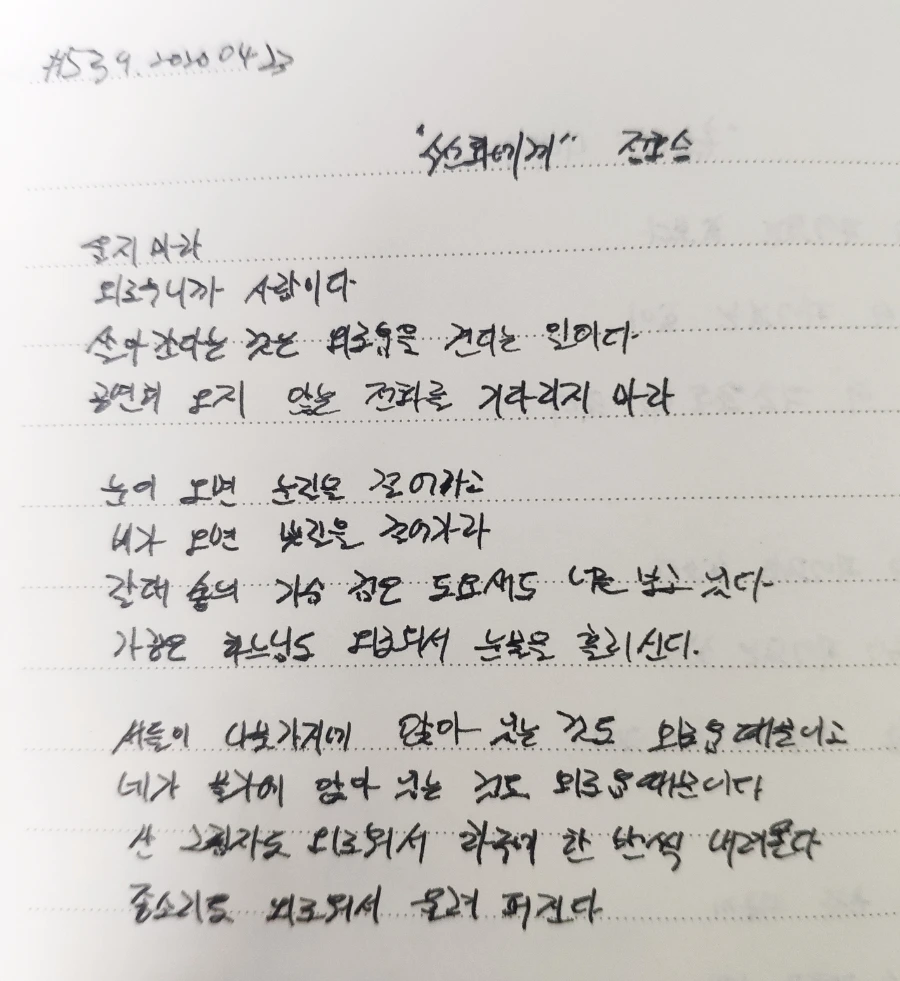 #539. 2020 04 23
"수선화에게" 정호승
울지 마라
외로우니까 사람이다
살아간다는 것은 외로움을 견디는 일이다
공연히 오지 않는 전화를 기다리지 마라
눈이 오면 눈길을 걸어가고
비가 오면 빗길을 걸어가라
갈대 숲의 가슴 검은 도요새도 너를 보고 있다
가끔은 하느님도 외로워서 눈물을 흘리신다.
새들이 나뭇가지에 앉아 있는 것도 외로움 때문이고
네가 물가에 앉아 있는 것도 외로움 때문이다
산 그림자도 외로워서 하루에 한 번씩 내려온다
종소리도 외로워서 울려 퍼진다